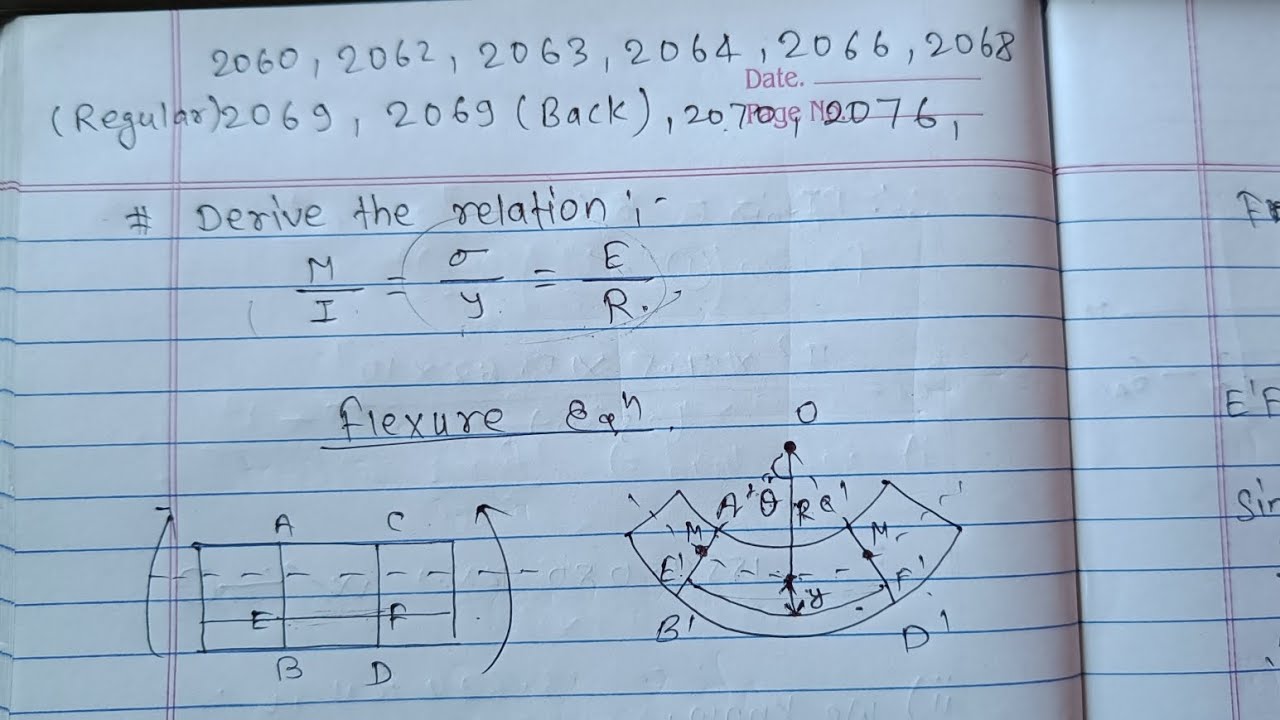 2060, 2062, 2063, 2064, 2066, 2068
Date.
(Regular) 2069, 2069 (Back), 2070, 2076,
Page No.
# Derive the relation :-
M/I = σ/y = E/R.
flexure eqⁿ.
O
A C
A' θ R C'
M M
E F
E' y F'
B D
B' D'
E'F